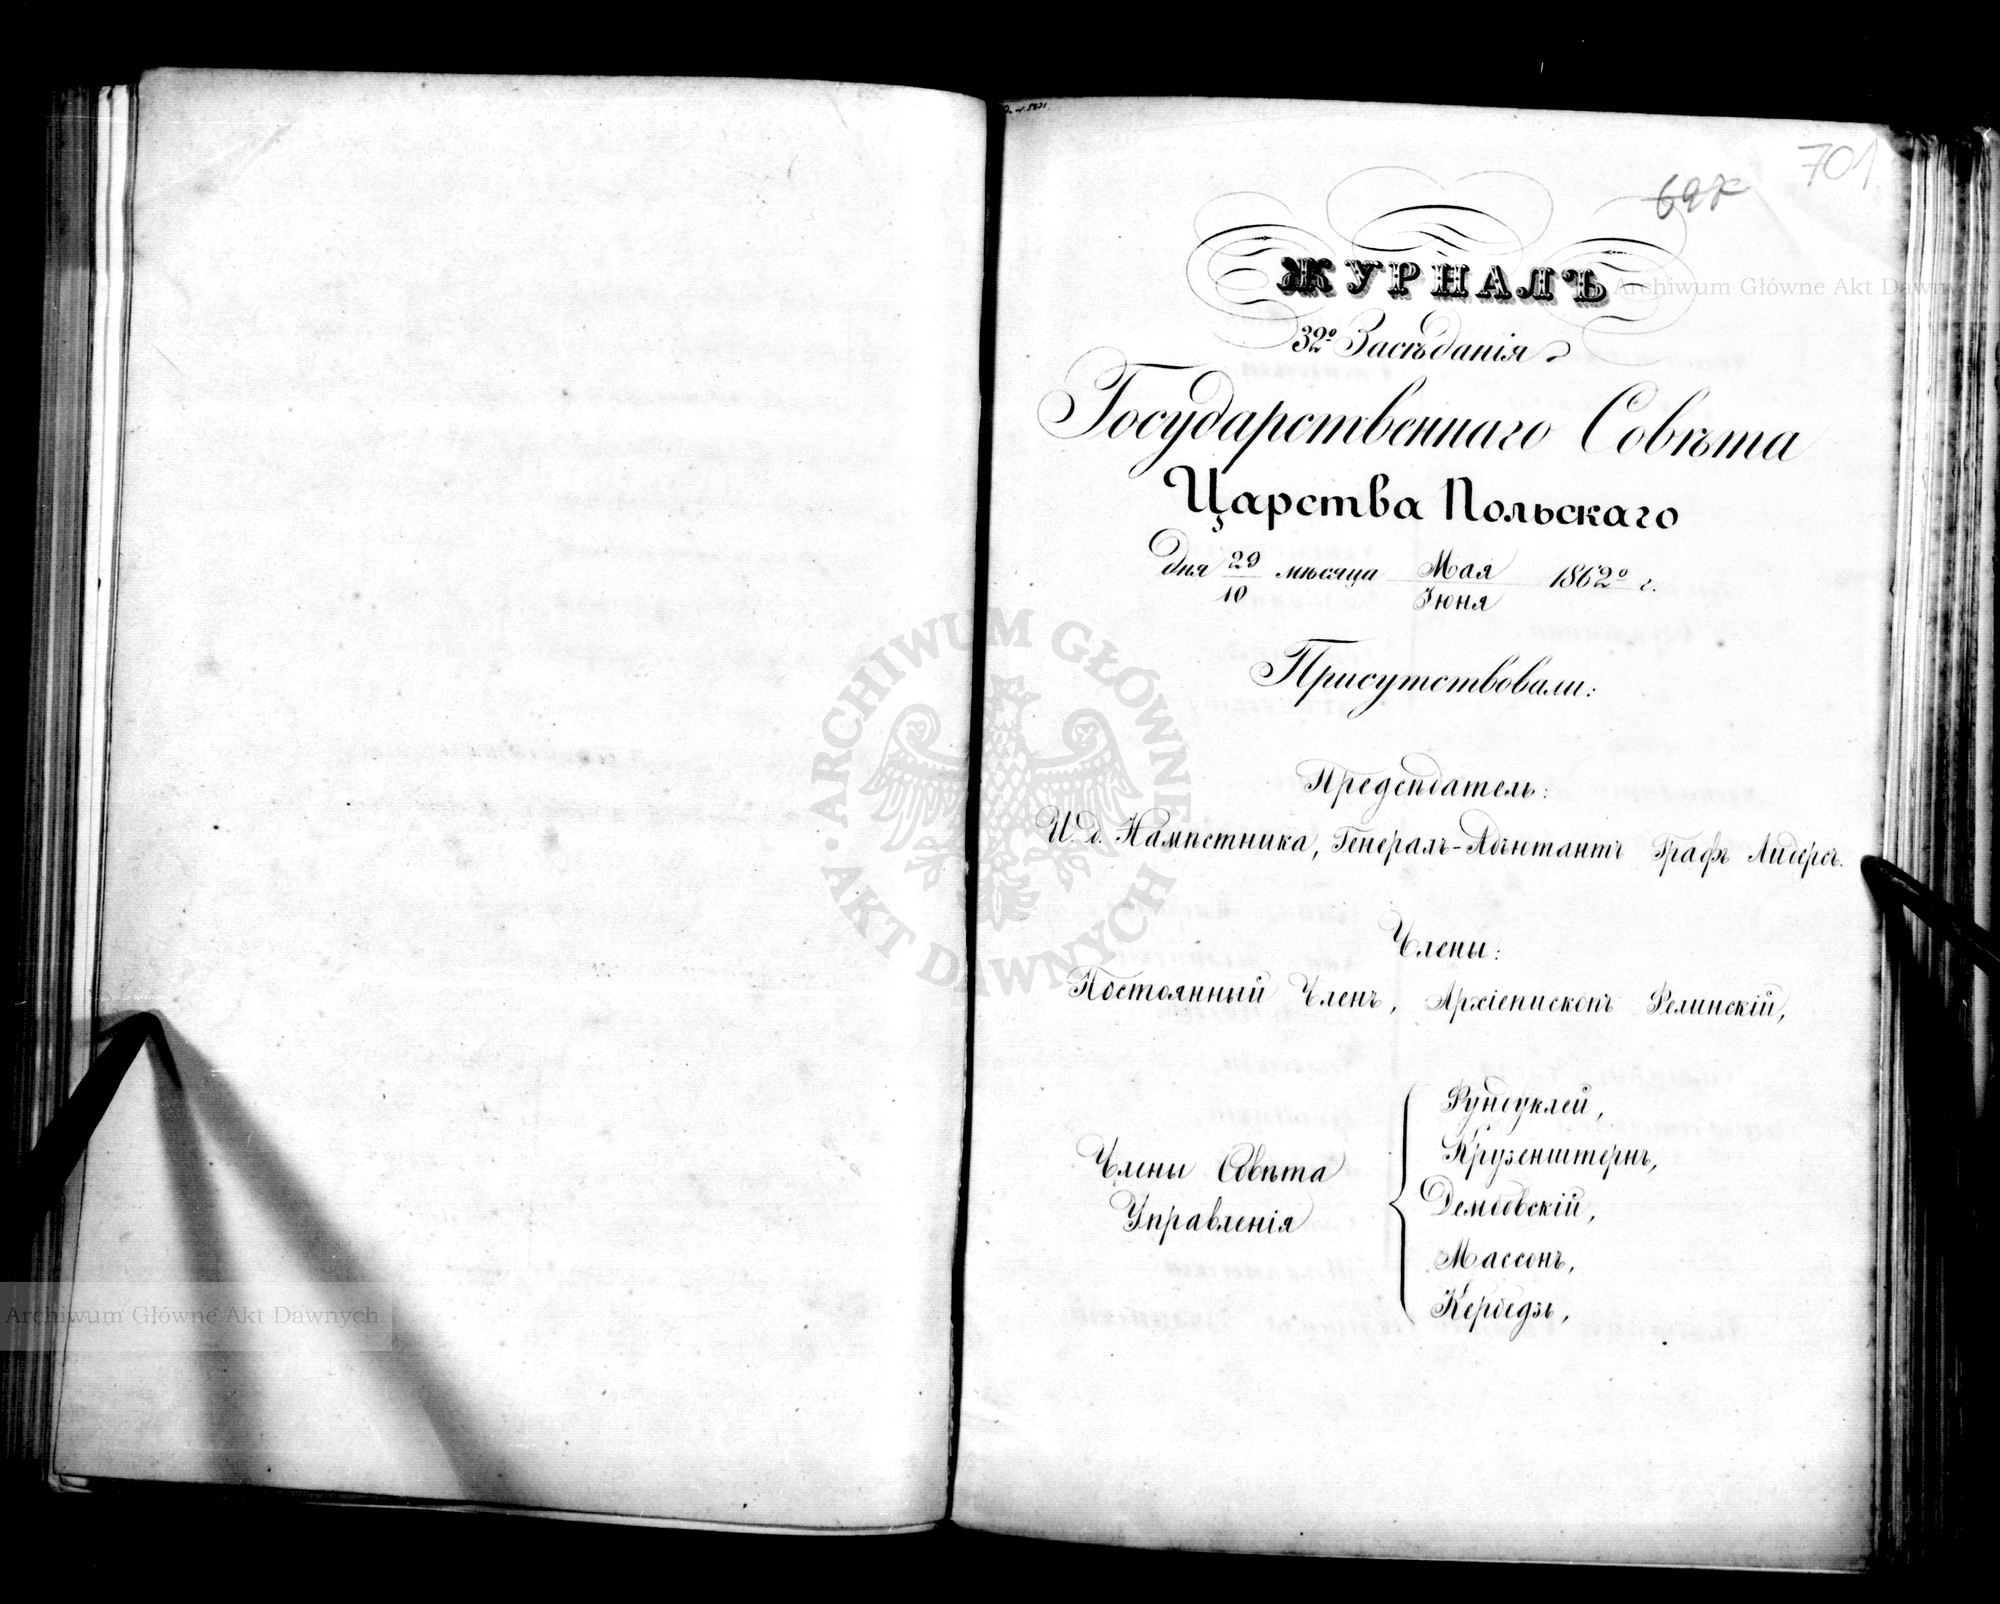 701
697
ЖУРНАЛЪ
32º Засѣданія
Государственнаго Совѣта
Царства Польскаго
дня 29/10 мѣсяца Мая/Іюня 1862º г.
Присутствовали:
Предсѣдатель:
И. д. Намѣстника, Генералъ-Адъютантъ Графъ Лидерсъ.
Члены:
Постоянный Членъ, Архіепископъ Фелинскій,
Члены Совѣта
Управленія
Фундуклей,
Крузенштернъ,
Дембовскій,
Массонъ,
Кербедзъ,
Archiwum Główne Akt Dawnych
ARCHIWUM GŁÓWNE AKT DAWNYCH
Archiwum Główne Akt Dawnych